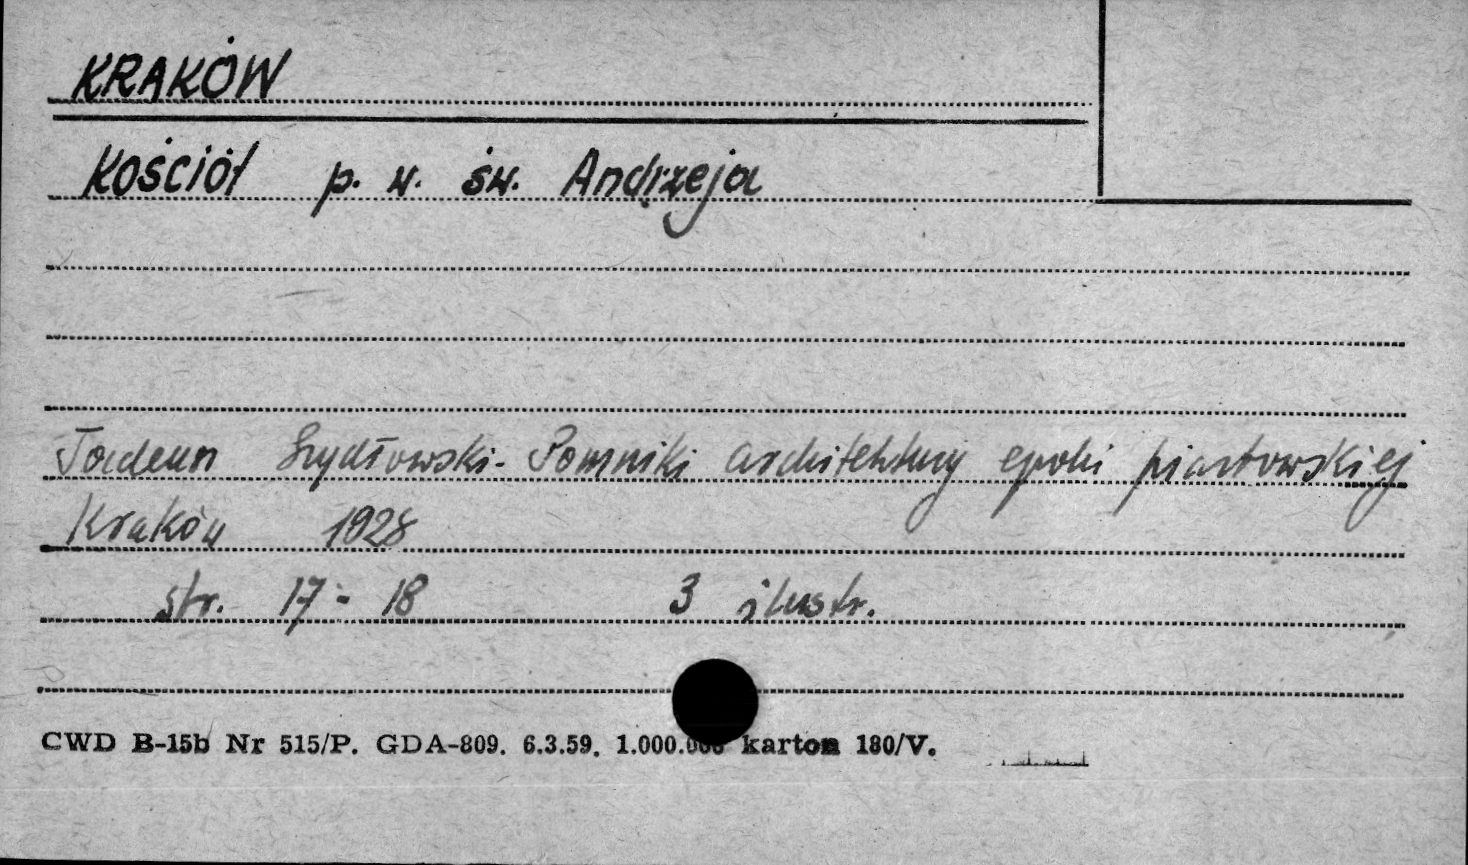 KRAKÓW
KOŚCIÓŁ p. w. św. Andrzeja
Tadeusz Szydłowski - Pomniki architektury epoki piastowskiej
Kraków 1928
str. 17 - 18 3 ilustr.
CWD B-15b Nr 515/P. GDA-809. 6.3.59. 1.000.000 karton 180/V.